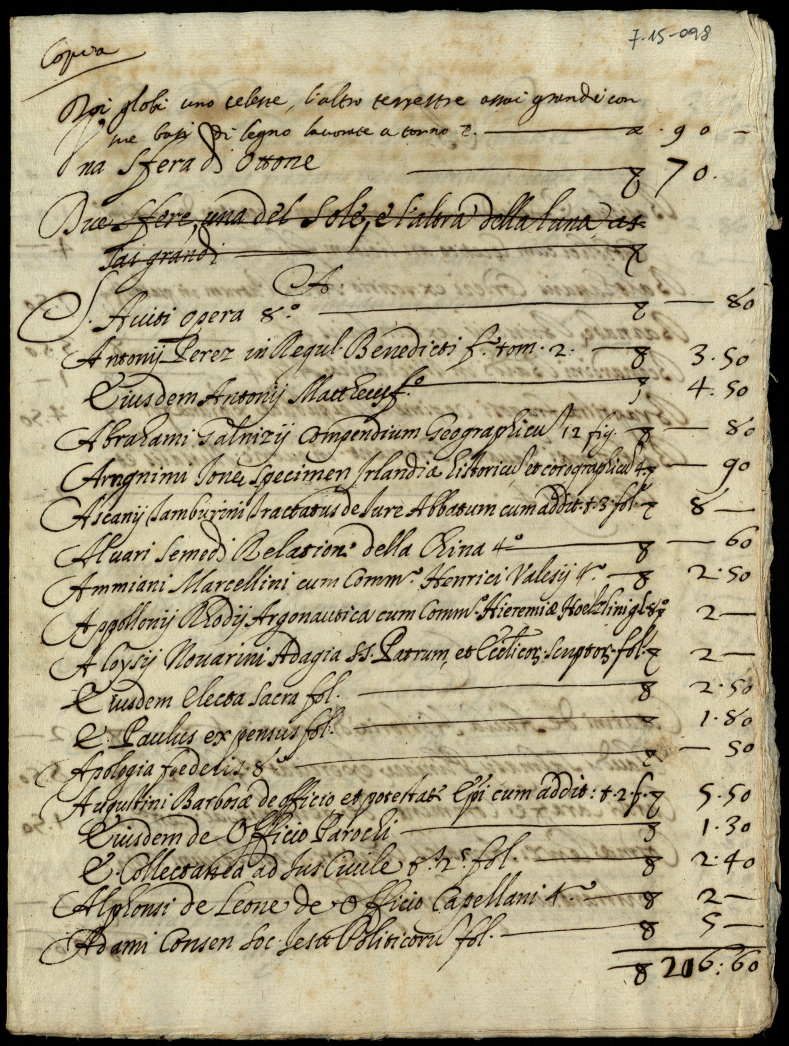 7-15-098
Copia
Doi globi uno celeste, l'altro terrestre assai grandi con
sue basi di legno lavorate a torno 90 —
Una Sfera di Ottone 70.
Due Sfere, una del Sole, e l'altra della luna as-
sai grandi
A.
S. Aviti opera 8.º — 80
Antonij Perez in Regul. Benedicti f.º tom. 2. 3.50
Eiusdem Antonij Mattheus f.º 4.50
Abrahami Golnizij Compendium Geographicũ 12 fig. — 80
Specimen Irlandiæ historicũ, et corographicũ 4 — 90
Ascanij Tamburini Tractatus de Iure Abbatum cum addit. t. 3. fol. 8 —
Aluari Semedi Relation.e della China 4.º — 60
Ammiani Marcellini cum Comm.º Henrici Valesij 4.º 2.50
Appollonij Rhodij Argonautica cum Comm.º Hieremiæ Hoelzlini gl. 8.º 2 —
Aloysij Nouarini Adagia SS. Patrum, et Ecclicoꝝ scriptoꝝ fol. 2 —
Eiusdem Electa Sacra fol. 2.50
E. Paulus expensus fol. 1.80
Apologia foederis 8.º — 50
Augustini Barbosæ de officio et potestate Epi cum addit: t. 2. f. 5.50
Eiusdem de Officio Parochi 1.30
E. Collectanea ad Ius Ciuile t. 2. fol. 2.40
Alphonsi de Leone de Officio Capellani 4.º 2 —
Adami Consen Soc. Iesu Politicorũ fol. 5 —
206:60